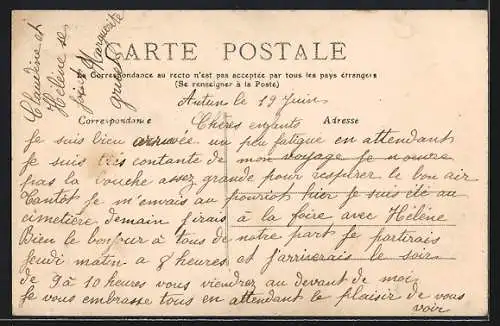 Claudine et
Hélène se
Marguerite
CARTE POSTALE
La Correspondance au recto n'est pas acceptée par tous les pays étrangers
(Se renseigner à la Poste)
Autun le 19 Juin
Correspondance
Adresse
Chères enfants
Je suis bien arrivée un peu fatigue en attendant
Je suis très contante de mon voyage Je n'ouvre
pas la bouche assez grande pour respirer le bon air
Tantôt Je m'envais au hier Je suis été au
cimetière demain J'irais à la foire avec Hélène
Bien le bonjour à tous de notre part Je partirais
Jeudi matin a 8 heures et J'arriverais le soir
de 9 à 10 heures vous viendrez au devant de moi
Je vous embrasse tous en attendant le plaisir de vous
voir